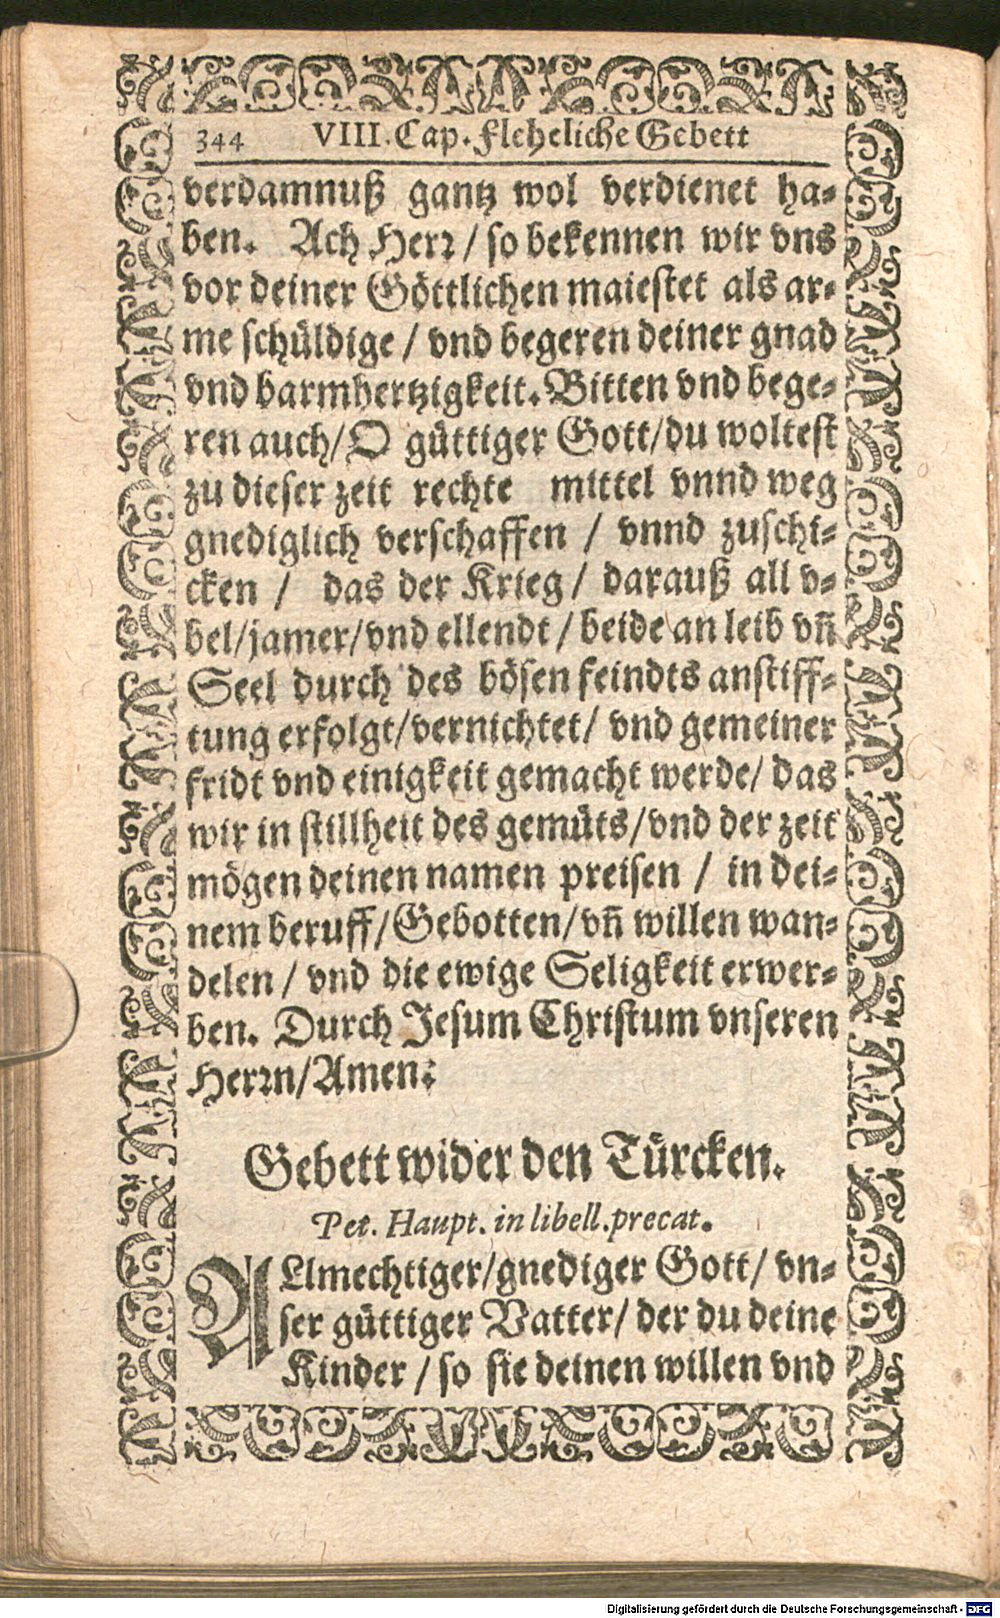 344 VIII. Cap. Fleheliche Gebett
verdamnuß gantz wol verdienet ha-
ben. Ach Herr / so bekennen wir vns
vor deiner Göttlichen maiestet als ar-
me schüldige / vnd begeren deiner gnad
vnd barmhertzigkeit. Bitten vnd bege-
ren auch / O güttiger Gott / du woltest
zu dieser zeit rechte mittel vnnd weg
gnediglich verschaffen / vnnd zuschi-
cken / das der Krieg / darauß all v-
bel / jamer / vnd ellendt / beide an leib vñ
Seel durch des bösen feindts anstiff-
tung erfolgt / vernichtet / vnd gemeiner
fridt vnd einigkeit gemacht werde / das
wir in stillheit des gemüts / vnd der zeit
mögen deinen namen preisen / in dei-
nem beruff / Gebotten / vñ willen wan-
delen / vnd die ewige Seligkeit erwer-
ben. Durch Jesum Christum vnseren
Herrn / Amen.
Gebett wider den Türcken.
Pet. Haupt. in libell. precat.
ALlmechtiger / gnediger Gott / vn-
ser güttiger Vatter / der du deine
Kinder / so sie deinen willen vnd
Digitalisierung gefördert durch die Deutsche Forschungsgemeinschaft - DFG